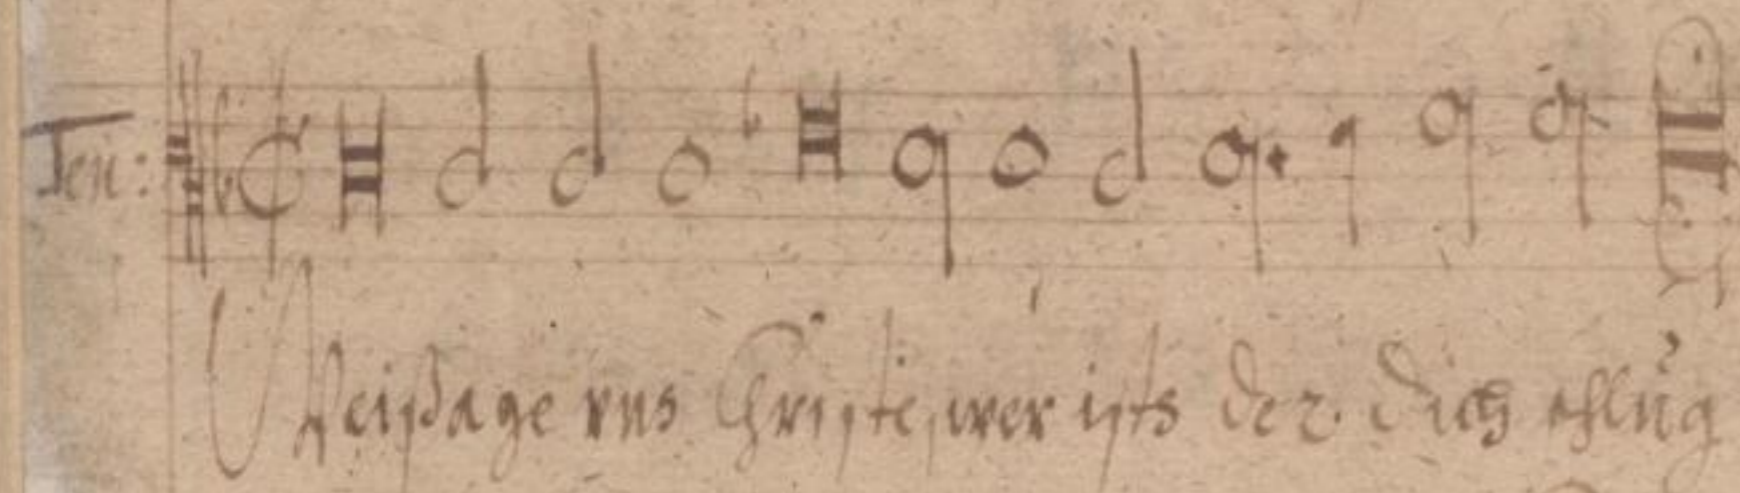 Ten:
Weissage vns Christe, wer ists der dich schlug